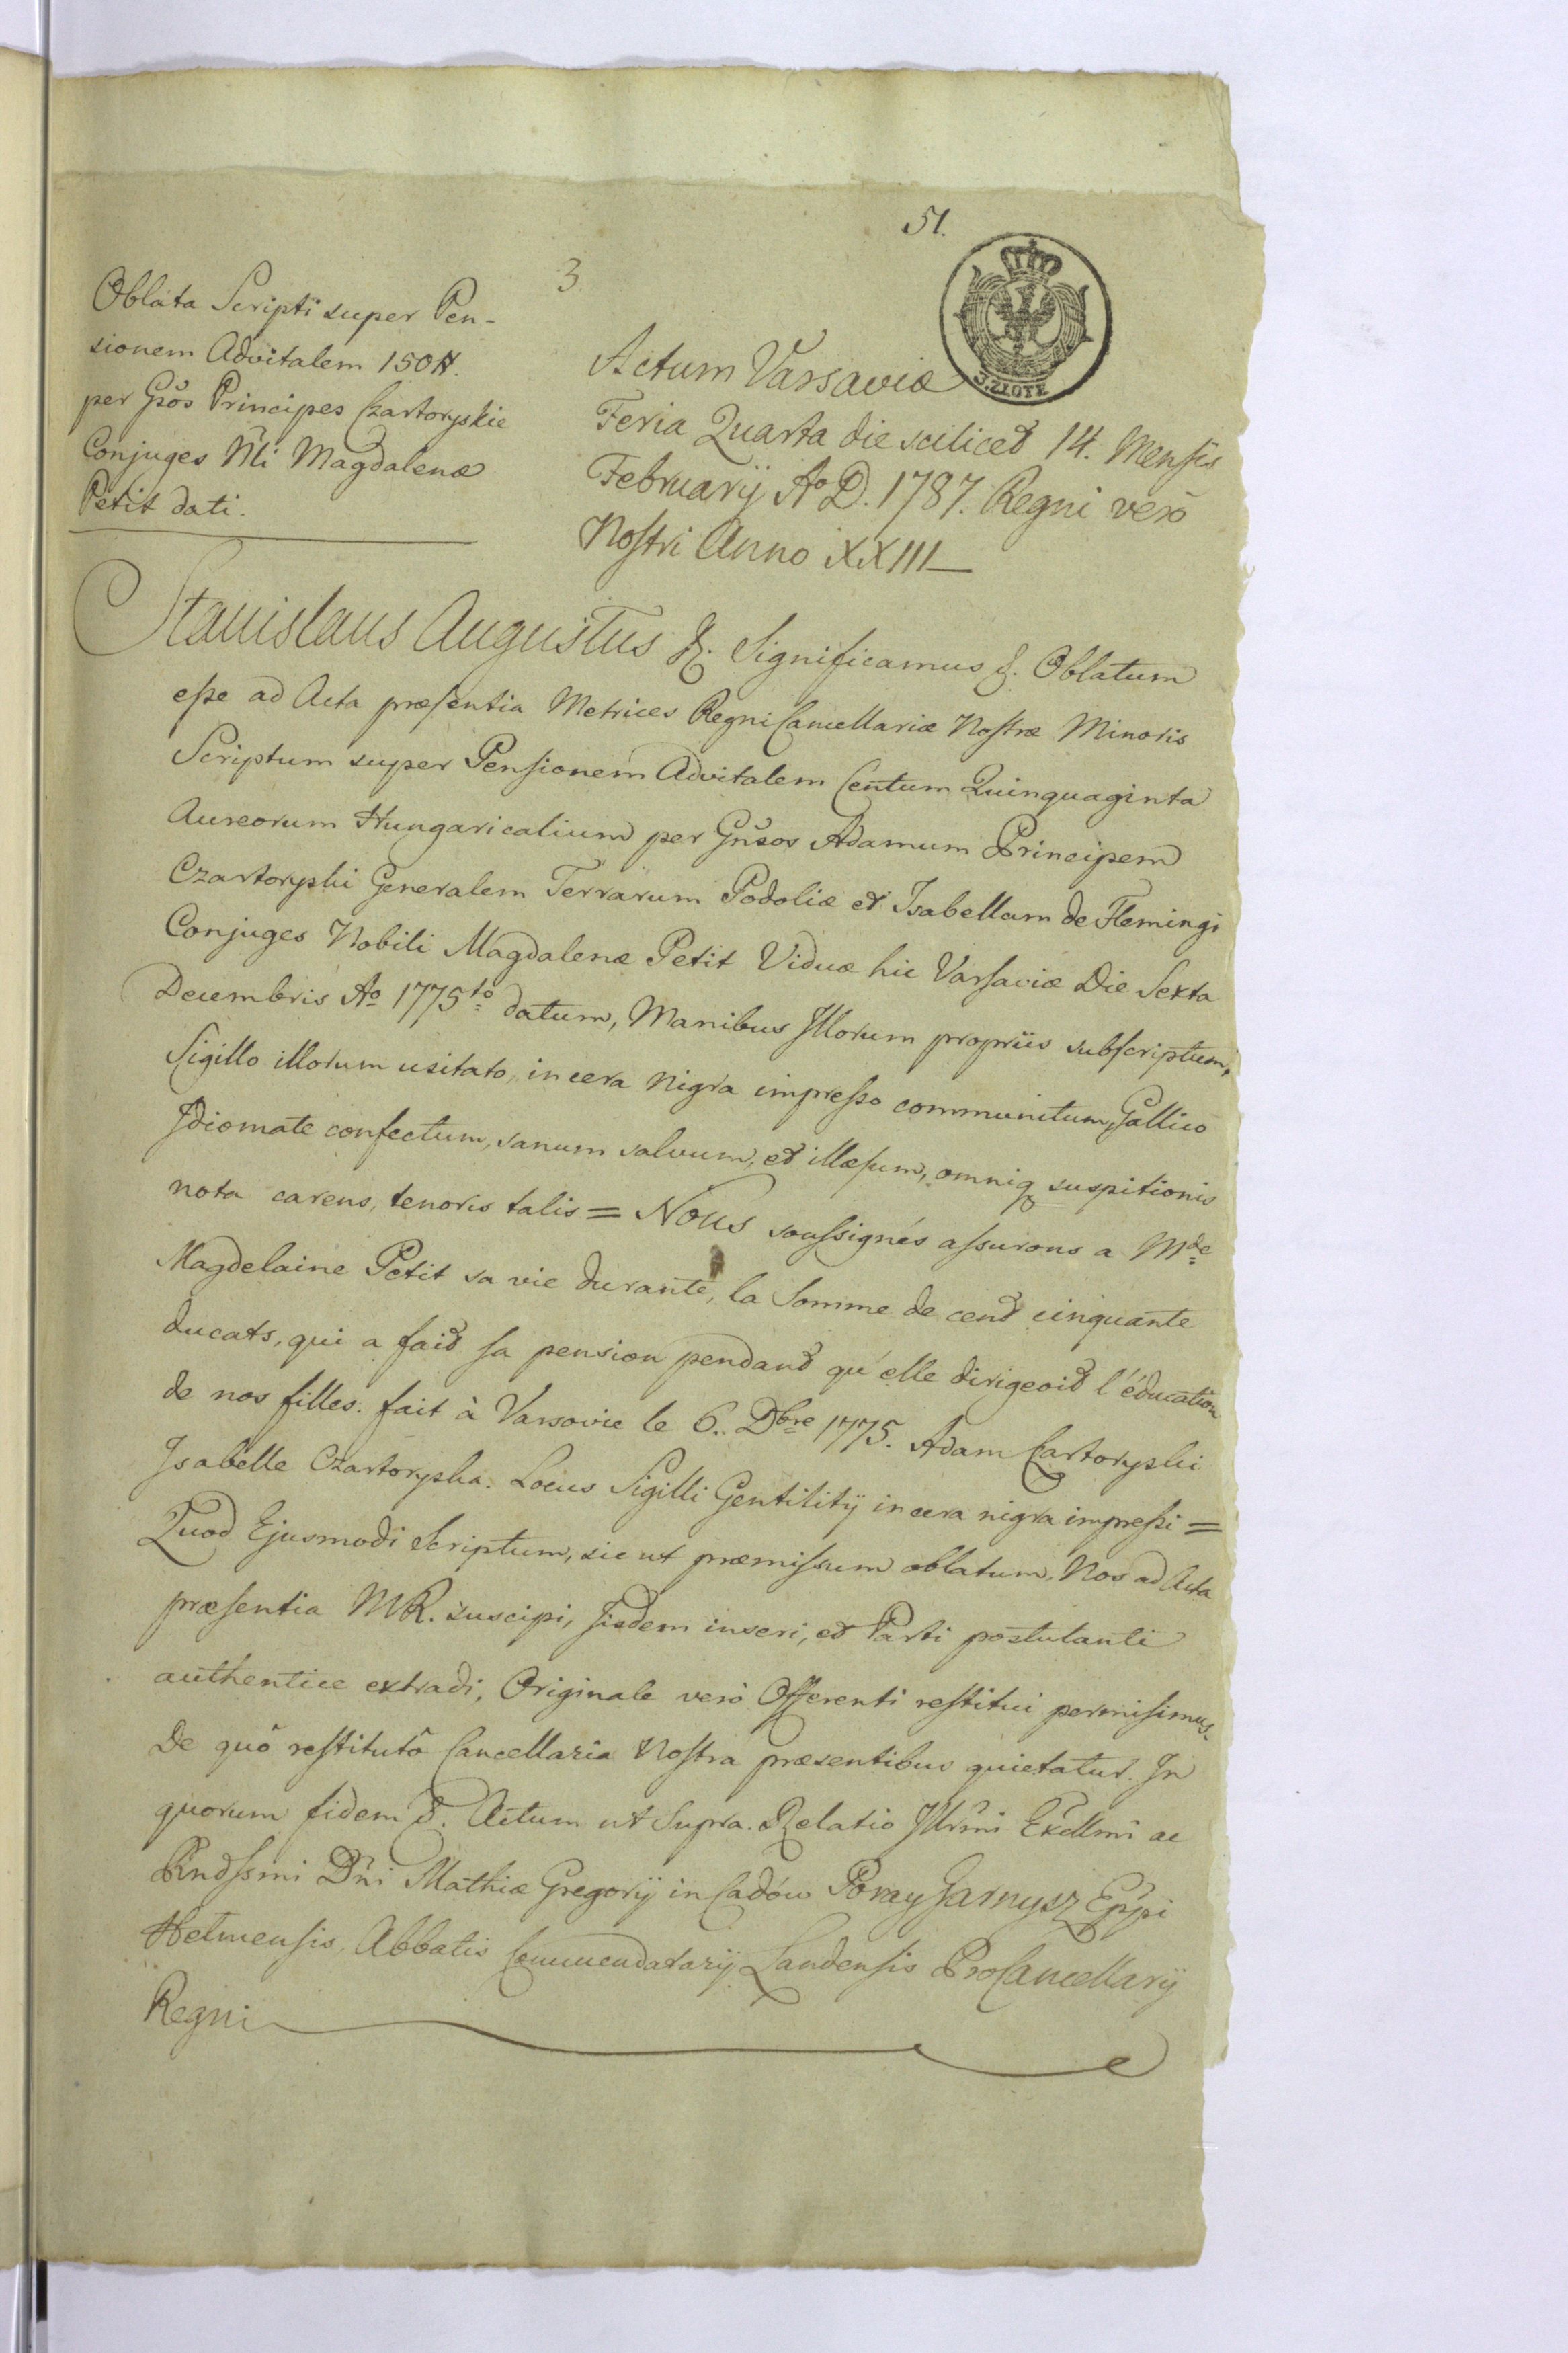 51.
3.
3. ZŁOTE
Oblata Scripti super Pen-
sionem Advitalem 150 #.
per Gsos Principes Czartoryskie
Conjuges Nli Magdalenæ
Petit dati.
Actum Varsaviæ
Feria Quarta die scilicet 14. Mensis
Februarij Ao D. 1787. Regni verò
Nostri Anno XXIII
Stanislaus Augustus &. Significamus &. Oblatum
esse ad Acta præsentia Metrices Regni Cancellariæ Nostræ Minoris
Scriptum super Pensionem Advitalem Centum Quinquaginta
Aureorum Hungaricalium per Gnsos Adamum Principem
Czartoryski Generalem Terrarum Podoliæ et Isabellam de Flemingi
Conjuges Nobili Magdalenæ Petit Viduæ hic Varsaviæ Die Sexta
Decembris Ao 1775to datum, Manibus Illorum propriis subscriptum,
Sigillo illorum usitato, in cera nigra impresso communitum, Gallico
Idiomate confectum, sanum salvum, et illæsum, omniq suspitionis
nota carens, tenoris talis = Nous soussignés assurons a Mde
Magdelaine Petit sa vie durante, la Somme de cent cinquante
ducats, qui a fait sa pension pendant qu'elle dirigeoit l'éducation
de nos filles. fait à Varsovie le 6. Dbre 1775. Adam Czartoryski
Isabelle Czartoryska. Locus Sigilli Gentilitij in cera nigra impressi =
Quod Ejusmodi Scriptum, sic ut præmissum oblatum, Nos ad Acta
præsentia MR. suscipi, Iisdem inseri, et Parti postulanti
authentice extradi, Originale verò Offerenti restitui permisimus.
De quô restitutô Cancellaria Nostra præsentibus quietatur. In
quorum fidem &. Actum ut Supra. Relatio Illrmi Excllmi ac
Rndssmi Dni Mathiæ Gregorij in Cadów Poray Garnysz Eppi
Helmensis, Abbatis Commendatarij Landensis ProCancellarij
Regni